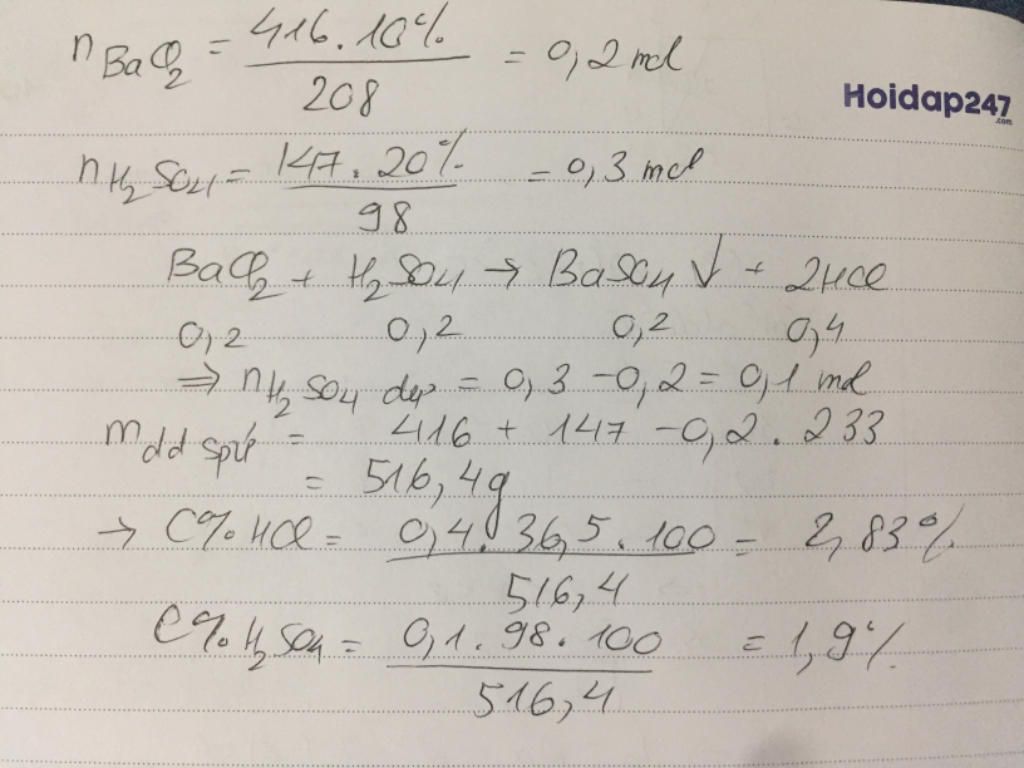 nBaCl2 = 416.10% / 208 = 0,2 mol
Hoidap247
.com
nH2SO4 = 147.20% / 98 = 0,3 mol
BaCl2 + H2SO4 → BaSO4 ↓ + 2HCl
0,2 0,2 0,2 0,4
⇒ nH2SO4 dư = 0,3 - 0,2 = 0,1 mol
mdd spứ = 416 + 147 - 0,2.233
= 516,4g
→ C% HCl = 0,4.36,5.100 / 516,4 = 2,83%
C% H2SO4 = 0,1.98.100 / 516,4 = 1,9%